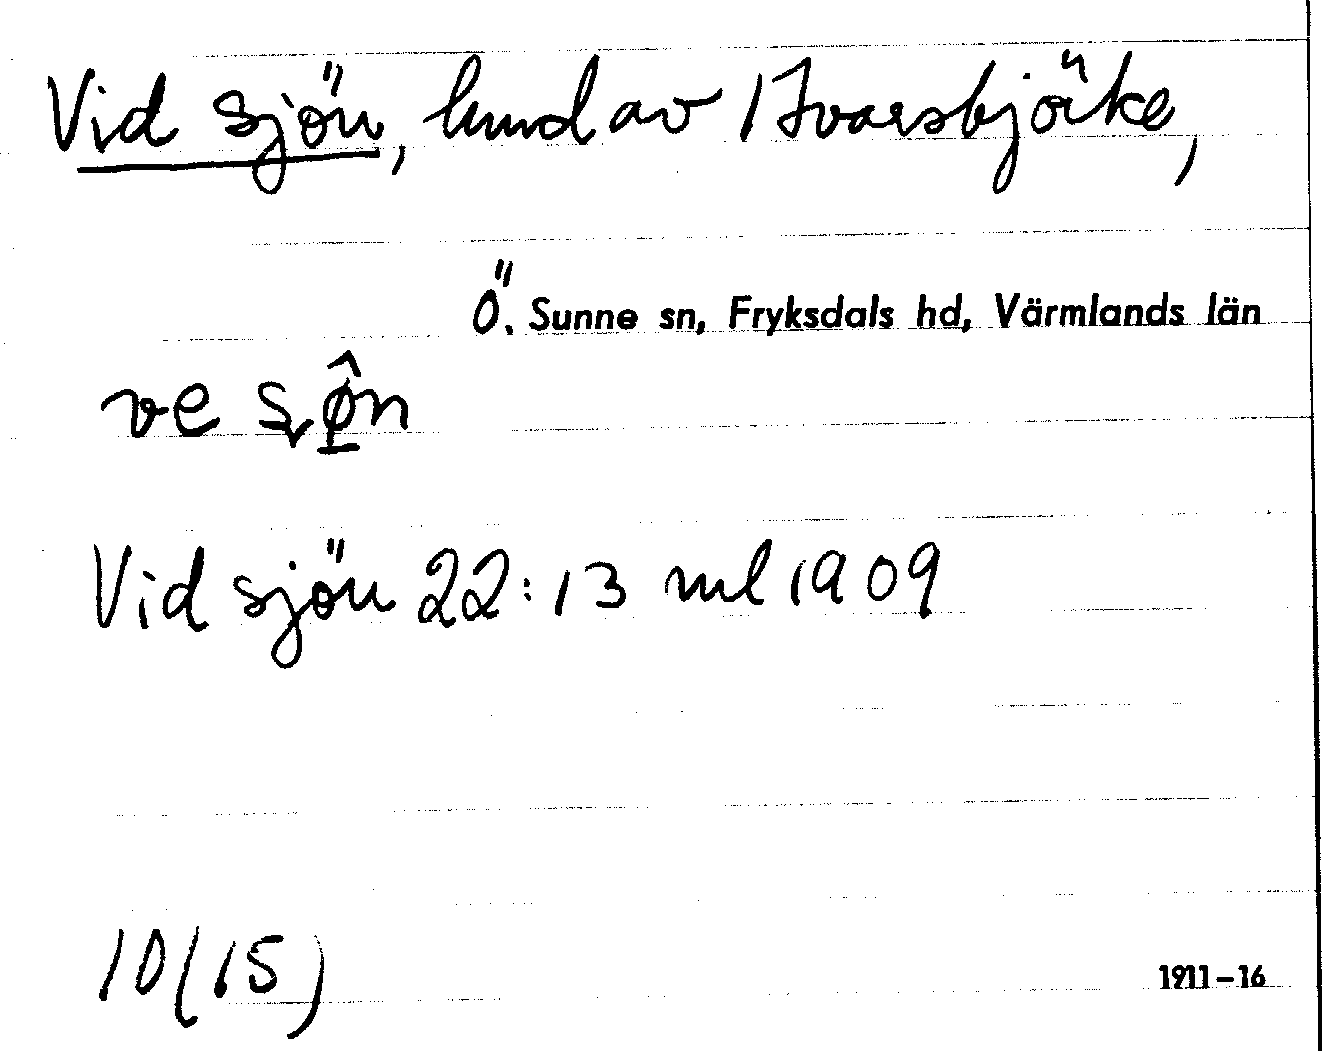 Vid sjön, hmd av 1 Ivarsbjörke,
Ö. Sunne sn, Fryksdals hd, Värmlands län
ve
Vid sjön 22:13 ml 1909
10 (15)
1911-16